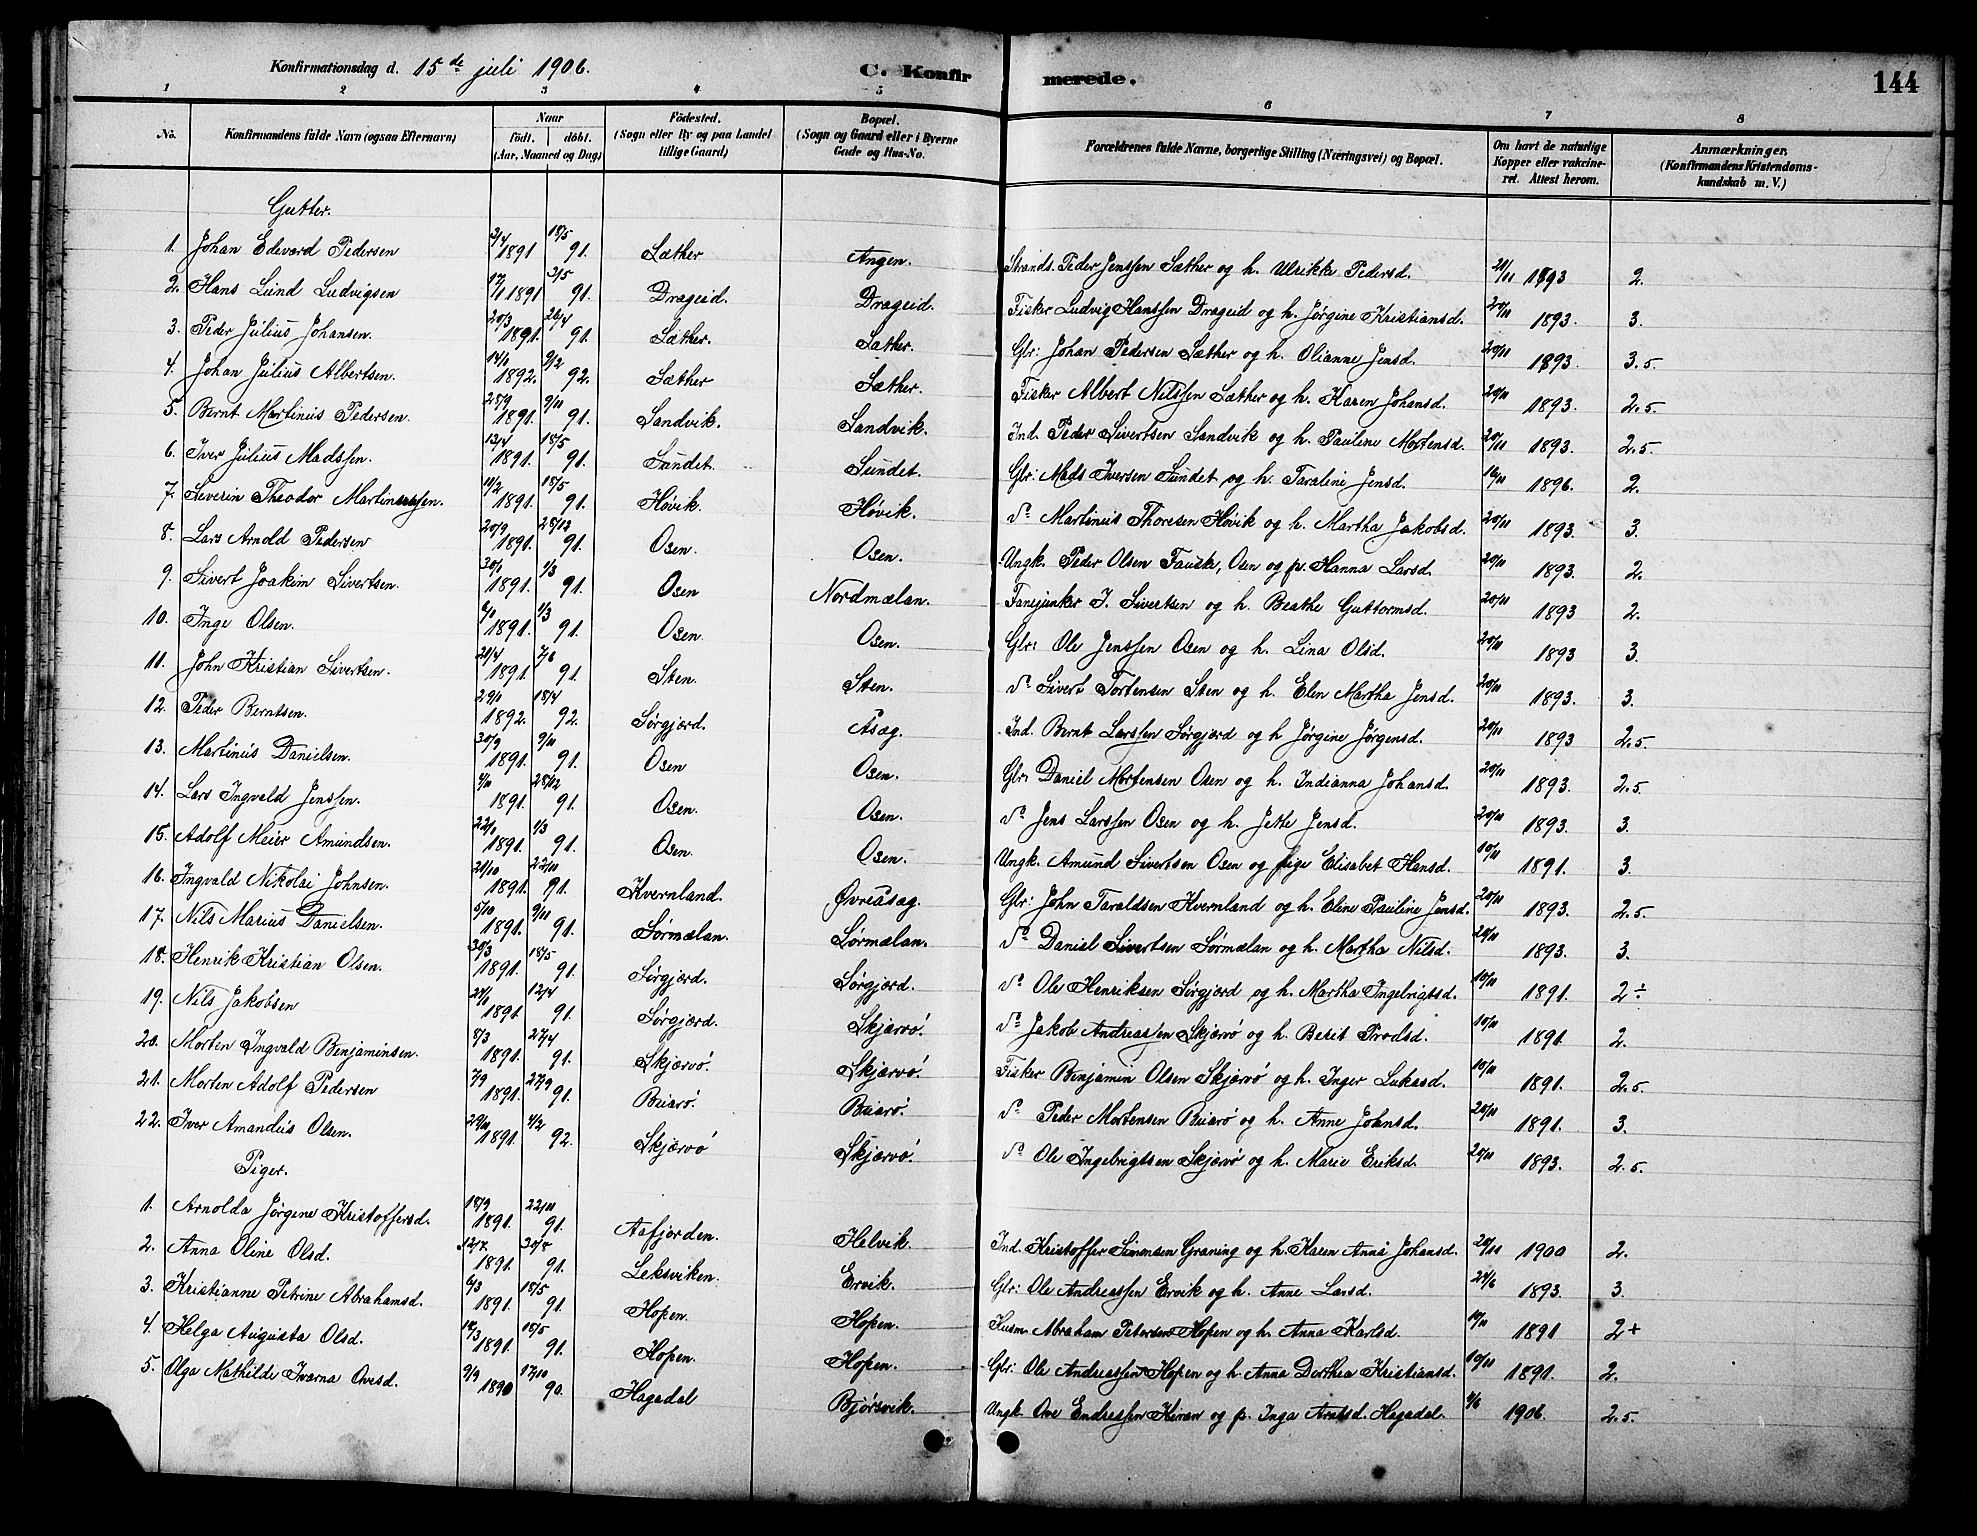 Konfirmationsdag d. 15de juli 1906.
C. Konfirmerede.
144
1 2 3 4 5 6 7 8
No. | Konfirmandens fulde Navn (ogsaa Efternavn) | Naar födt. döbt. (Aar, Maaned og Dag) | Födested. (Sogn eller By og paa Landet tillige Gaard) | Bopæl. (Sogn og Gaard eller i Byerne Gade og Hus-No. | Forældrenes fulde Navne, borgerlige Stilling (Næringsvei) og Bopæl. | Om havt de naturlige Kopper eller vakcineret. Attest herom. | Anmærkninger. (Konfirmandens Kristendomskundskab m. V.)
Gutter.
1. Johan Edevard Pedersen 2/4 1891 18/5 91. Sæther Angen. Strands. Peder Jenssen Sæther og h. Ulrikke Pedersd. 21/11 1893 2.
2. Hans Lund Ludvigsen 17/1 1891 3/5 91. Drageid. Drageid. Fisker Ludvig Hanssen Drageid og h. Jørgine Kristiansd. 20/11 1893. 3.
3. Peder Julius Johansen. 20/3 1891. 26/4 91. Sæther. Sæther. Glr: Johan Pedersen Sæther og h. Olianne Jensd. 20/11 1893. 3.5
4. Johan Julius Albertsen. 14/1 1892. 9/2 92. Sæther Sæther. Fisker Albert Nilssen Sæther og h. Karen Johansd. 20/11 1893. 2.5
5. Bernt Martinus Pedersen. 28/9 1891. 9/11 91. Sandvik. Sandvik. Ind. Peder Sivertsen Sandvik og h. Pauline Mortensd. 20/11 1893. 2.5
6. Iver Julius Madssen. 13/4 1891. 18/5 91. Sundet. Sundet. Glr: Mads Iversen Sundet og h. Taraline Jensd. 16/11 1896. 2.
7. Severin Theodor Martinussen. 11/2 1891. 18/5 91. Høvik. Høvik. do Martinus Thoresen Høvik og h. Martha Jakobsd. 20/11 1893. 3.
8. Lars Arnold Pedersen 20/9 1891. 28/12 91. Osen. Osen. Ungk. Peder Olsen Fausk, Osen og p. Hanna Larsd. 20/11 1893. 2.
9. Sivert Joakim Sivertsen. 30/1 1891. 1/3 91. Osen Nordmælan. Fanejunker J. Sivertsen og h. Beathe Guttormsd. 20/11 1893 2.
10. Inge Olsen. 6/1 1891. 1/3 91. Osen. Osen. Glr: Ole Jenssen Osen og h. Lina Olsd. 20/11 1893 3.
11. John Kristian Sivertsen. 21/4 1891. 7/6 91. Sten. Sten. do Sivert Tortensen Sten og h. Elen Martha Jensd. 20/11 1893. 3.
12. Peder Berntsen. 29/1 1892. 18/4 92. Sørgjerd. Aasæg. Ind. Bernt Larssen Sørgjerd og h Jørgine Jørgensd. 20/11 1893 2.5
13. Martinus Danielsen. 30/9 1891. 9/11 91. Osen Osen. Glr: Daniel Mortensen Osen og h. Indianna Johansd. 20/11 1893. 2.5
14. Lars Ingvald Jenssen. 4/11 1891. 28/12 91. Osen. Osen. do Jens Larssen Osen og h. Jette Jensd. 20/11 1893. 3.
15. Adolf Meier Amundsen. 22/1 1891. 1/3 91. Osen. Osen. Ungk. Amund Sivertsen Osen og pige Elisabet Hansd. 10/11 1891. 3.
16. Ingvald Nikolai Johnsen. 21/10 1891. 22/11 91. Kvernland. Øvreåsag. Glr: John Taraldsen Kvernland og h. Eline Pauline Jensd. 20/11 1893. 2.5
17. Nils Marius Danielsen. 5/10 1891. 9/11 91. Sørmælan. Sørmælan. do Daniel Sivertsen Sørmælan og h. Martha Nilsd. 20/11 1893. 3.
18. Henrik Kristian Olsen. 30/3 1891. 18/5 91. Sørgjerd. Sørgjerd. do Ole Henriksen Sørgjerd og h. Martha Ingebrigtsd. 10/11 1891. 2÷
19. Nils Jakobsen 24/1 1891. 12/4 91. Sørgjerd. Skjærvö. do Jakob Andreassen Skjærvö og h. Berit Trodsd. 10/11 1891. 2.
20. Morten Ingvald Benjaminsen. 8/3 1891. 27/4 91. Skjærvö. Skjærvö. Fisker Benjamin Olsen Skjærvö og h. Inger Lukasd. 10/11 1891. 2.5
21. Morten Adolf Pedersen 7/9 1891. 27/9 91. Buarö. Buarö. do Peder Mortensen Buarö og h. Anne Johnsd. 20/11 1891. 3.
22. Iver Amandus Olsen. 29/11 1891. 4/2 92. Skjærvö Skjærvö. do Ole Ingebrigtsen Skjærvö og h. Marie Eriksd. 20/11 1893. 2.5
Piger.
1. Arnolda Jørgene Kristoffersd. 18/9 1891. 22/11 91. Aafjorden. Helvik. Ind. Kristoffer Simonsen Graning og h. Karen Anna Johansd. 20/11 1900 2.
2. Anna Oline Olsd. 12/7 1891. 30/8 91. Leksviken. Ervik. Glr: Ole Andreassen Ervik og h. Anne Larsd. 24/6 1893. 3.
3. Kristianne Petrine Abrahamsd. 6/3 1891. 18/5 91. Hopen. Hopen. Husm. Abraham Petersen Hopen og h. Anna Karlsd. 10/11 1891 2+
4. Helga Augusta Olsd. 18/3 1891. 18/5 91. Hopen. Hopen. Glr: Ole Andreassen Hopen og h. Anna Dorthea Kristiansd. 10/11 1891. 2.
5. Olga Mathilde Iverna Ovesd. 9/9 1890 17/10 90. Hagadal Bjørsvik. Ungk. Ove Endressen Kiran og p. Inga Arntsd. Hagadal. 4/6 1906. 2.5.